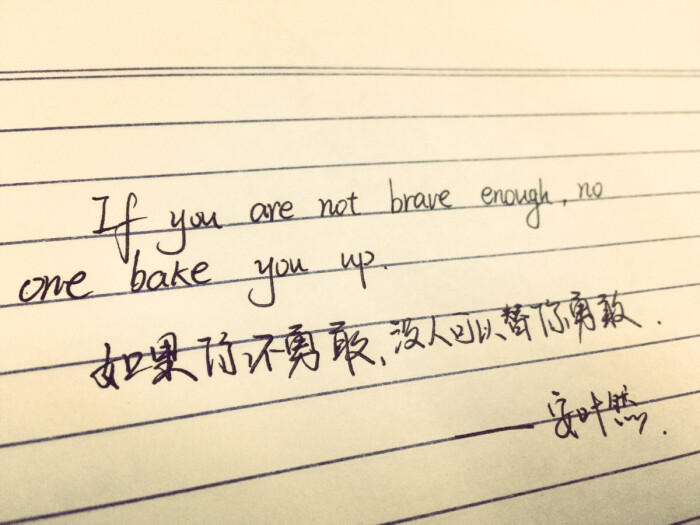 If you are not brave enough, no
one bake you up.
如果你不勇敢，没人可以替你勇敢.
——安叶然.